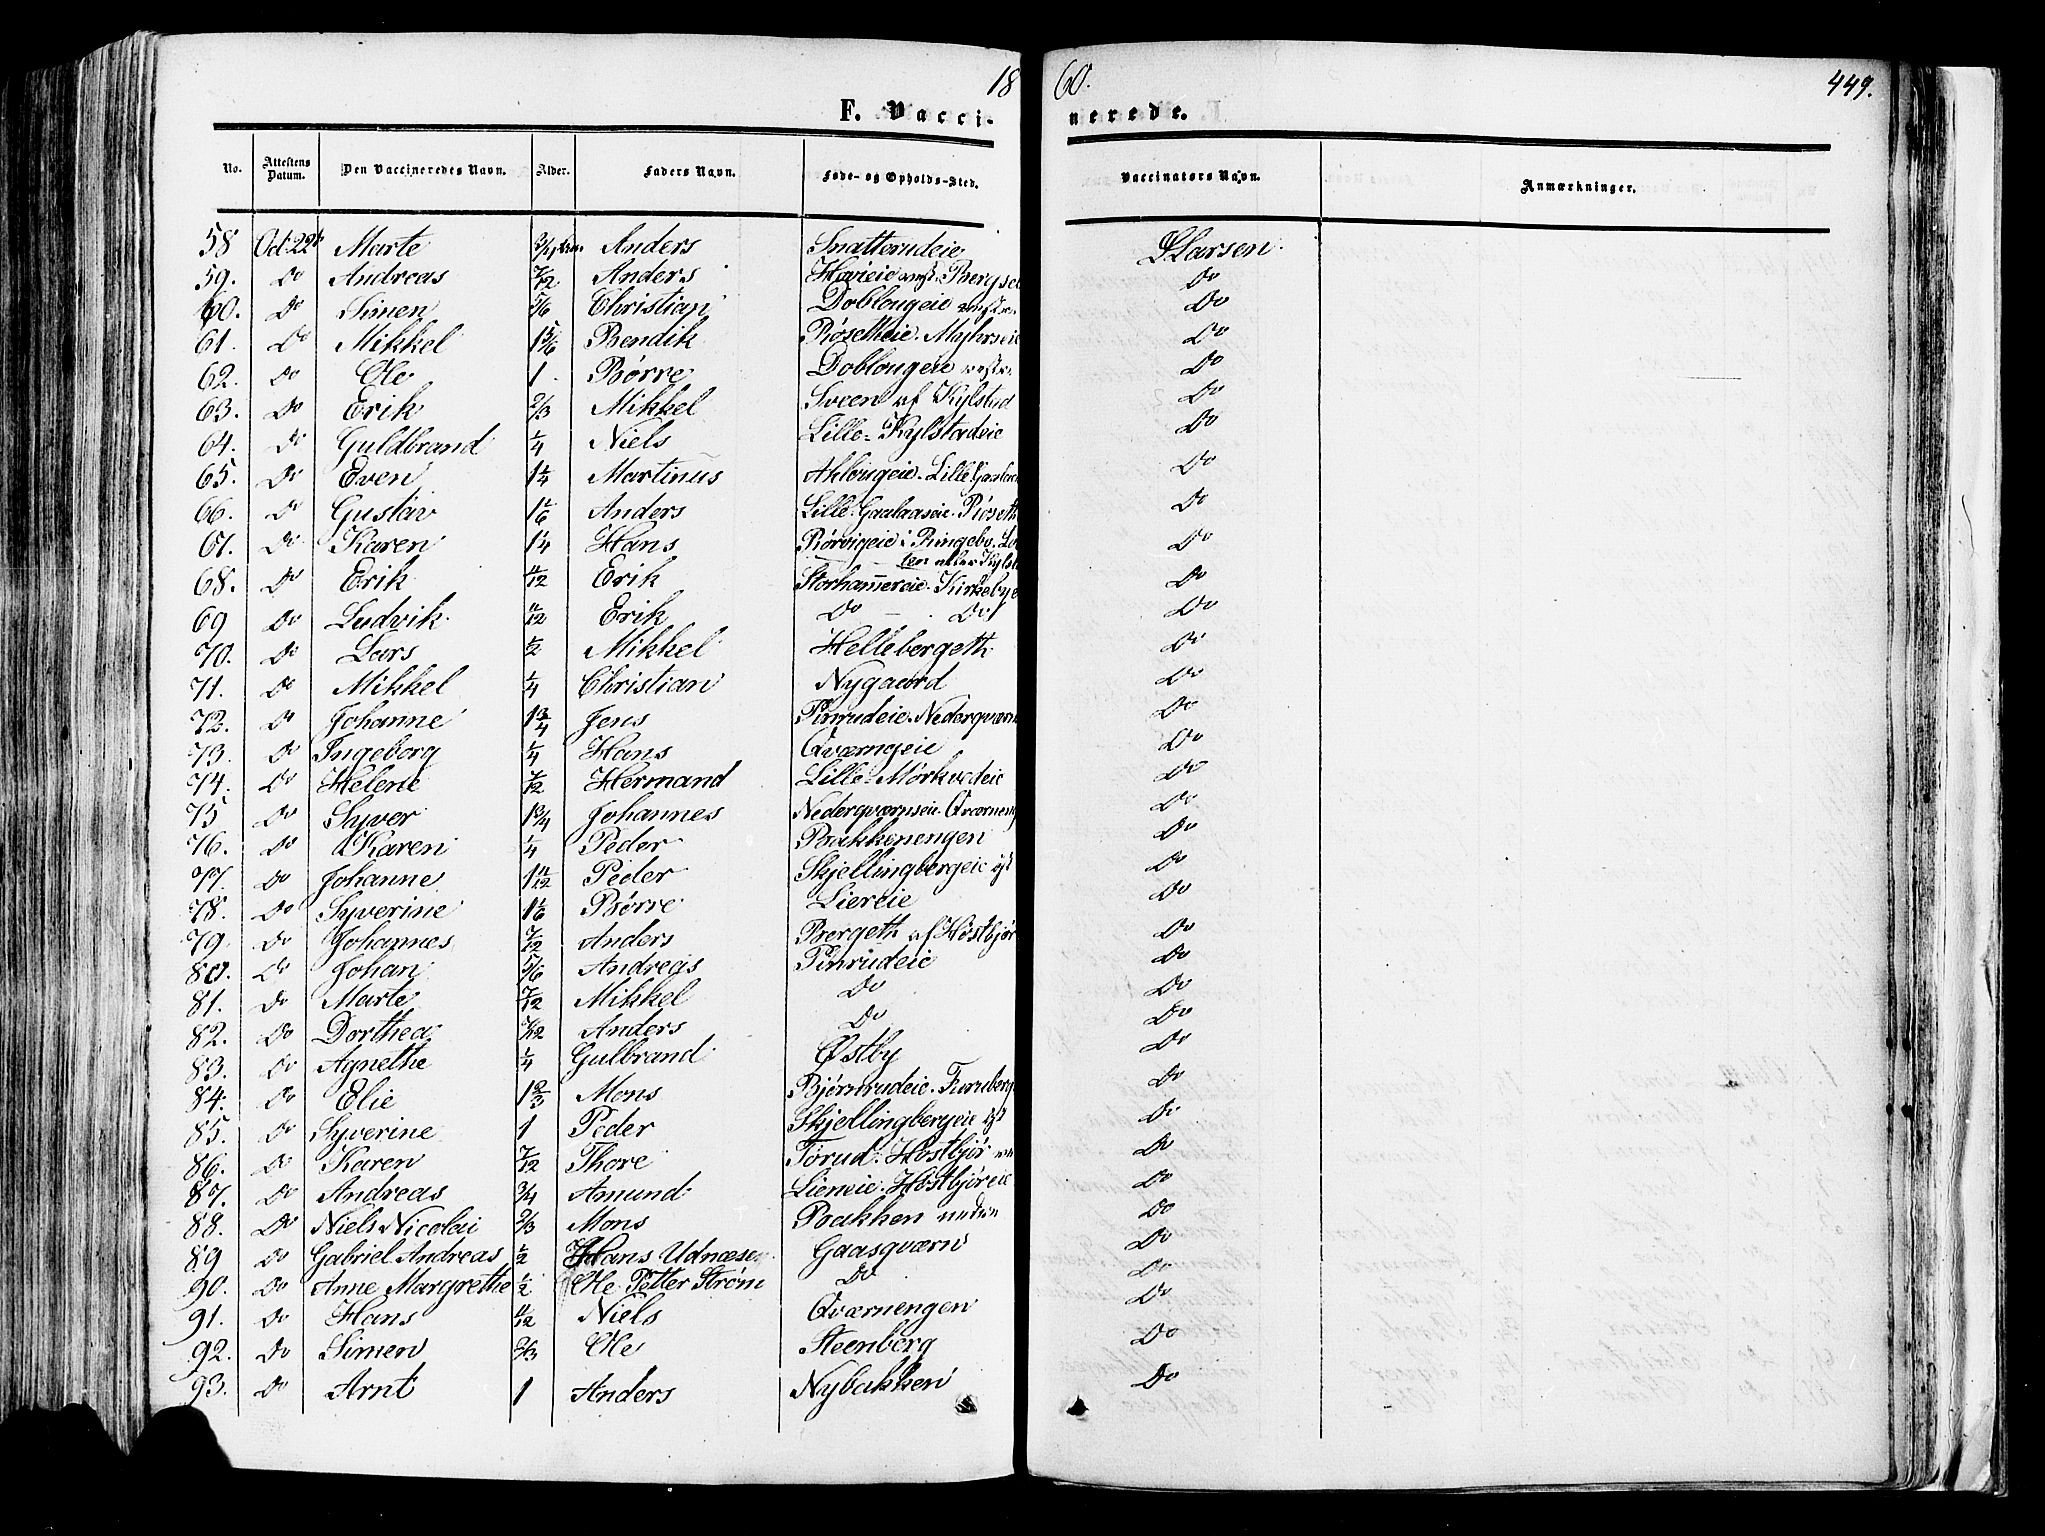 1860. 449.
F. Vaccinerede.
No. Attestens Datum. Den Vaccineredes Navn. Alder. Faders Navn. Føde- og Opholds-Sted. Vaccinators Navn. Anmærkninger.
58 Oct. 22 Marte Anders Snatterudeie Larsen.
59. Do Andreas 7/12 Anders Do
60. Do Simen 5/6 Christian Doblougeie Do
61. Do Mikkel 1 5/6 Bendik Røsetheie. Myhrseie Do
62. Do Ole 1 Børre Doblougeie Do
63. Do Erik 2/3 Mikkel Sveen af Kylstad Do
64. Do Guldbrand 1/4 Niels Lille-Kylstadeie Do
65. Do Even 1 1/4 Martinus Lille Do
66. Do Gustav 1 1/6 Anders Lille-Gaalaaseie. Røseth Do
67. Do Karen 1 1/4 Hans Rørvigeie i Ringebo. Do
68. Do Erik 11/12 Erik Storhamereie. Do
69 Do Ludvik 11/12 Erik Do Do Do
70. Do Lars 1/2 Mikkel Hellebergeth Do
71. Do Mikkel 1/4 Christian Nygaard Do
72. Do Johanne 1 3/4 Jens Pinrudeie. Nederqværn Do
73. Do Ingeborg 1/4 Hans Qværneie Do
74. Do Helene 7/12 Hermand Lille-Mørkvedeie Do
75 Do Syver 1 3/4 Johannes Nederqværnseie. Qværneng Do
76. Do Karen 1/4 Peder Bakkenengen Do
77. Do Johanne 1 11/12 Peder Skjellingbergeie Do
78. Do Syverine 1 1/6 Børre Liereie Do
79. Do Johannes 7/12 Anders Bergeth af Høstbjør Do
80. Do Johan 5/6 Andreas Pinrudeie Do
81. Do Marte 7/12 Mikkel Do Do
82. Do Dorthea Anders Do Do
83. Do Agnethe 1/4 Gulbrand Østby Do
84. Do Elie 1 2/3 Mons Bjørnrudeie. Do
85. Do Syverine 1 Peder Skjellingbergeie Do
86. Do Karen 7/12 Thore Torud. Høstbjør Do
87. Do Andreas 3/4 Amund Lieneie. Høstbjøreie Do
88. Do Niels Nicolai 2/3 Mons Bakken nedre Do
89 Do Gabriel Andreas 1/2 Hans Udnæsen Gaasqværn Do
90. Do Anne Margrethe 1/2 Ole Petter Strøm Do Do
91. Do Hans 11/12 Niels Qværnengen Do
92. Do Simen 2/3 Ole Steenberg Do
93. Do Arnt 1 Anders Nybakken Do